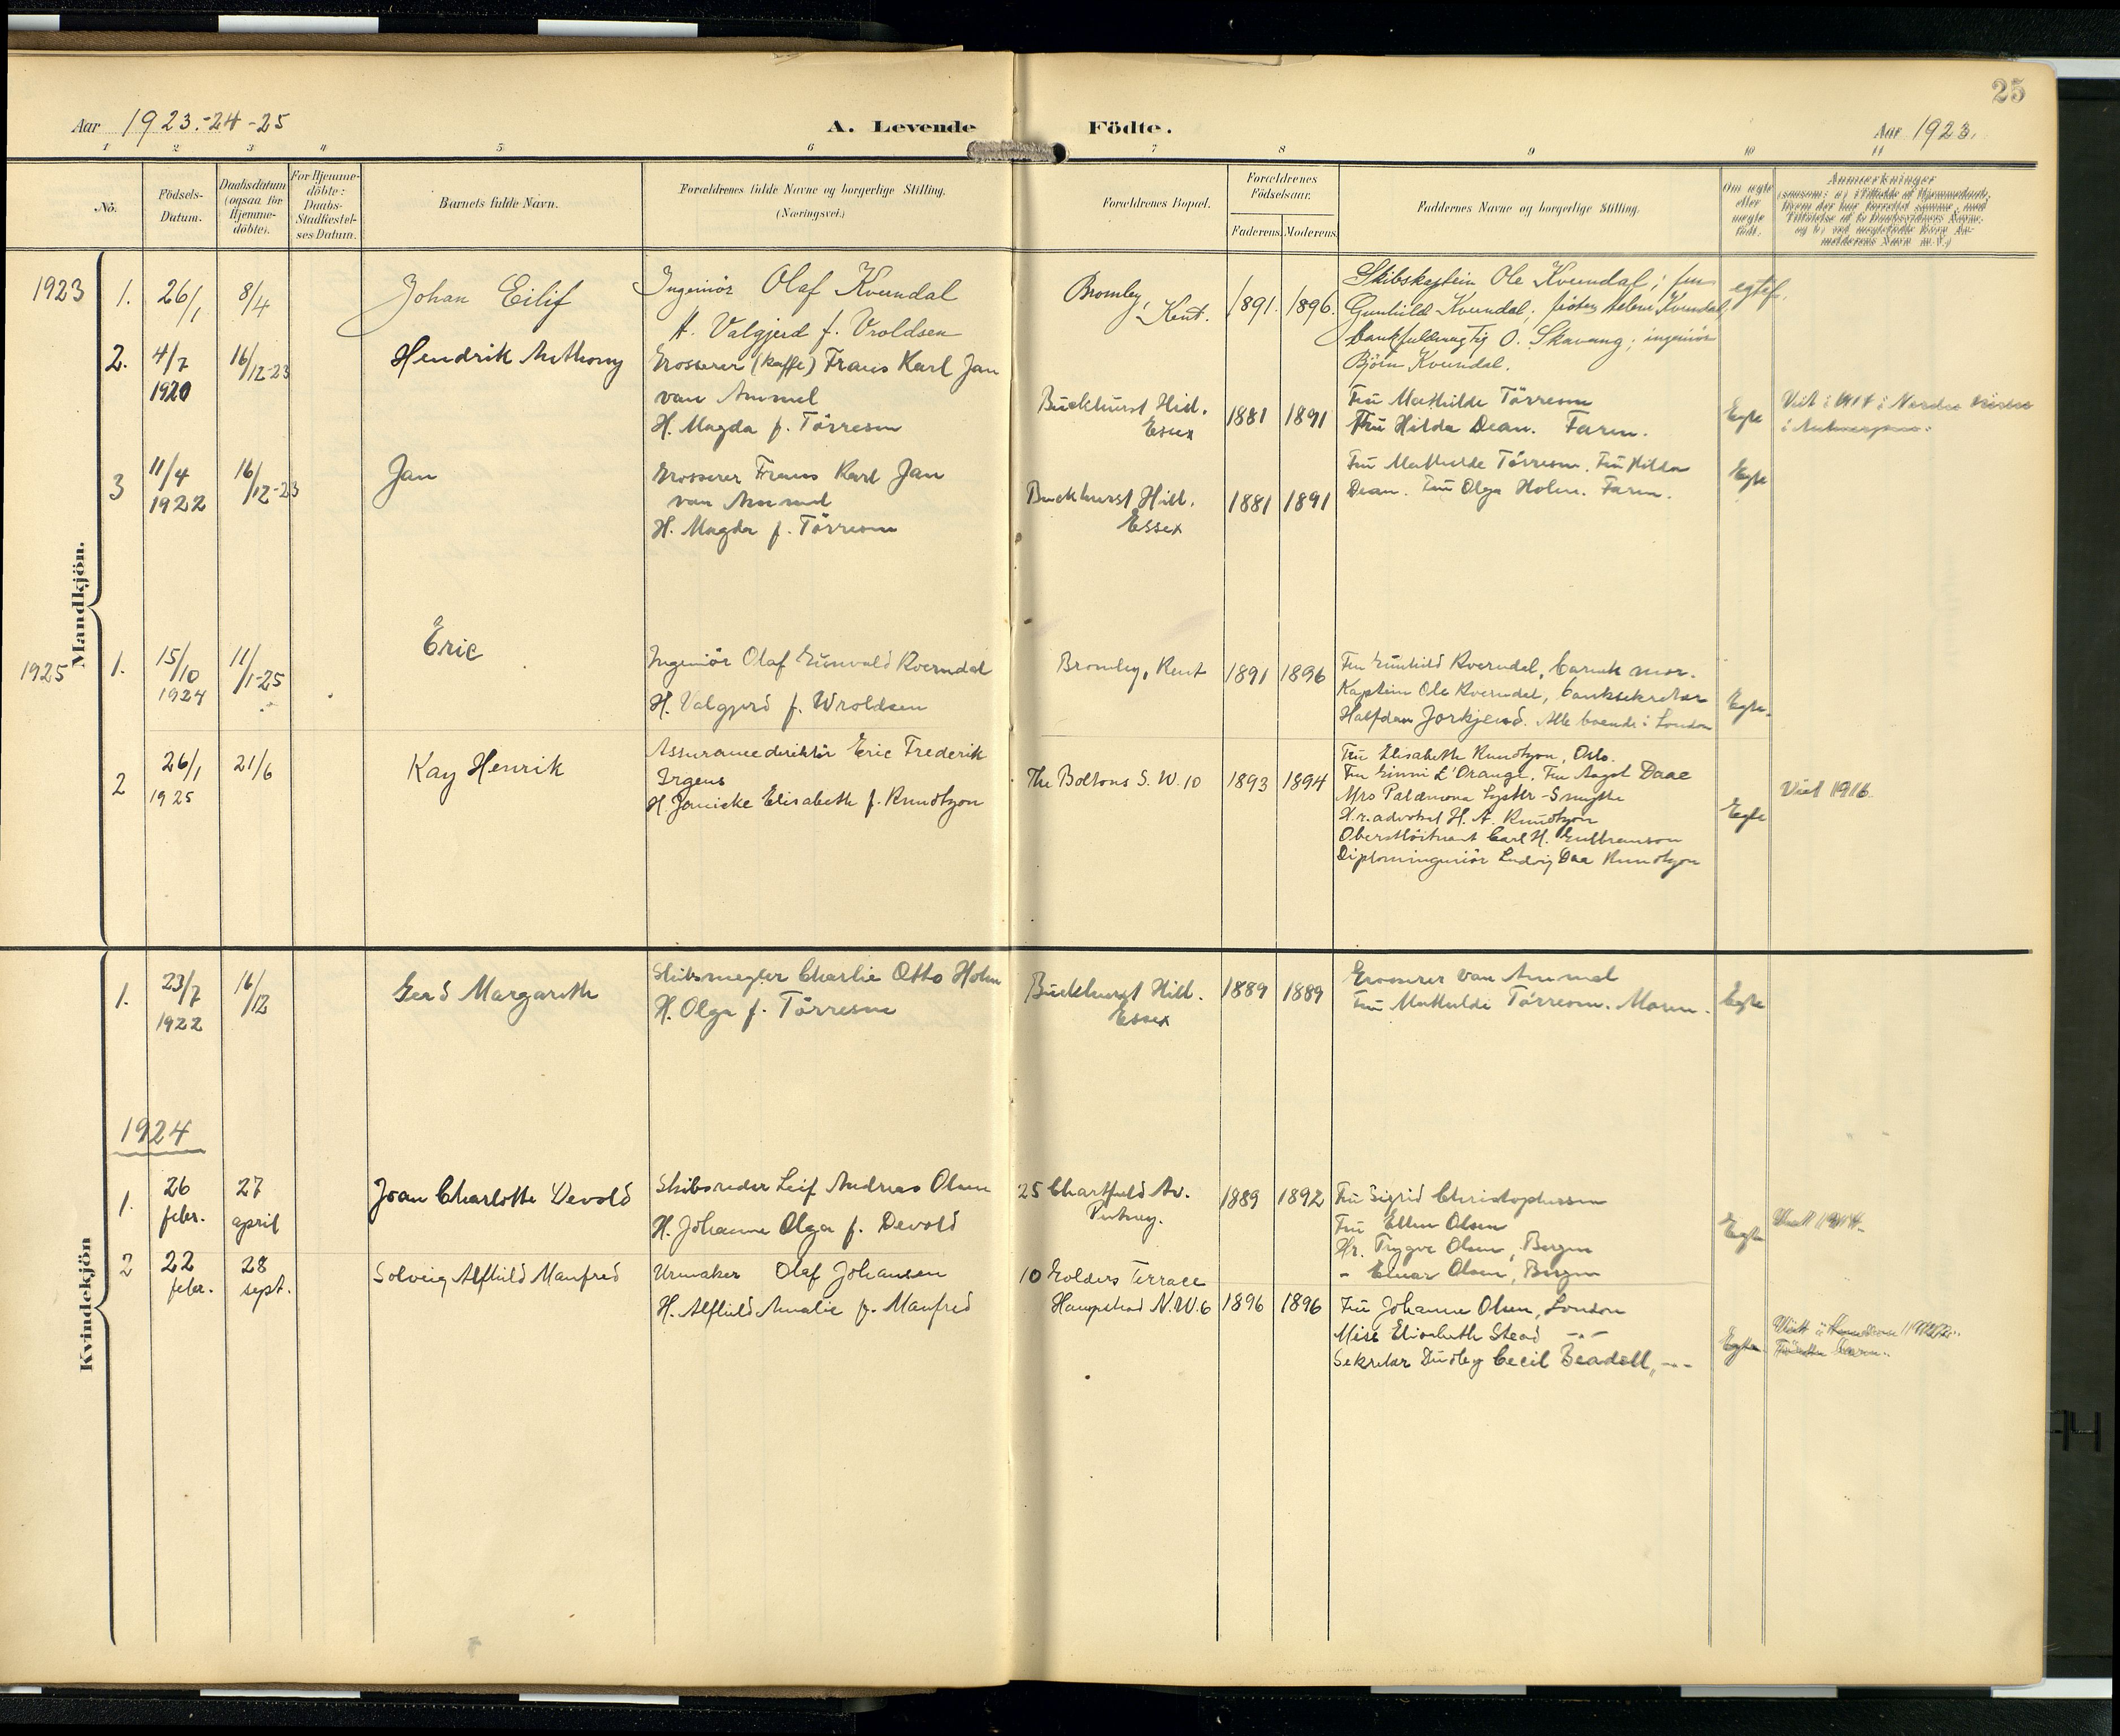 25
Aar 1923.-24-25
A. Levende Födte.
Aar 1923.
1 2 3 4 5 6 7 8 9 10 11
No.
Födsels-
Datum.
Daabsdatum
(ogsaa for
Hjemme-
döbte).
For Hjemme-
döbte:
Daabs-
Stadfæstel-
ses Datum.
Barnets fulde Navn.
Forældrenes fulde Navne og borgerlige Stilling.
(Næringsvei.)
Forældrenes Bopæl.
Forældrenes
Födselsaar.
Faderens. Moderens.
Faddernes Navne og borgerlige Stilling.
Om ægte
eller
uægte
født.
Anmerkninger
Mandkjön.
1923
1. 26/1 8/4
Johan Eilif
Ingeniör Olaf Kvendal
H. Valgjerd f. Vroldsen
Bromley,
Kent.
1891. 1896.
Skibskaptein Ole Kvendal; fru
Gunhild Kvendal; frøken Helene Kvendal;
bankfuldmægtig O. Skavang; ingeniör
Björn Kvendal.
egtef.
2. 4/7 1920 16/12-23
Hendrik Anthony
Grosserer (kaffe) Frans Karl Jan
van Ammel
H. Magda f. Törresen
Buckhurst Hill.
Essex
1881 1891
Fru Mathilde Törresen
Fru Hilda Dean. Faren.
Egte
3 11/4 1922 16/12-23
Jan
Grosserer Frans Karl Jan
van Ammel
H. Magda f. Törresen
Buckhurst Hill.
Essex
1881 1891
Fru Mathilde Törresen. Fru Hilda
Dean. Fru Olga Holm. Faren.
Egte
1925
1. 15/10 1924 11/1-25
Eric
Ingeniör Olaf Gunvald Kverndal
H. Valgjerd f. Wroldsen
Bromley, Kent
1891 1896
Fru Gunhild Kverndal, barnets mor.
Kaptein Ole Kverndal, banksekretær
Halfdan Jorkjend. Alle boende i London
Egte.
2 26/1 1925 21/6
Kay Henrik
Assurancedirektör Eric Frederik
Irgens
H. Janicke Elisabeth f. Knudtzon
The Boltons S.W. 10
1893 1894
Fru Elisabeth Knudtzon, Oslo.
Fru Ginni L'Orange. Fru Aagot Daae
Mrs Palæmona Lyster-Smythe
H.r.advokat H. A. Knudtzon
Oberstlöitnant Carl H. Gulbranson
Diplomingeniör Ludvig Daa Knudtzon
Egte
Viet 1916.
Kvindekjön
1. 23/7 1922 16/12
Gerd Margareth
Skibsmegler Charlie Otto Holm
H. Olga f. Törresen
Buckhurst Hill.
Essex
1889 1889
Grosserer van Ammel
Fru Mathilde Törresen. Moren.
Egte
1924
1. 26 febr. 27 april
Joan Charlotte Devold
Skibsreder Leif Andreas Olsen
H. Johanne Olga f. Devold
25 Chartfield Av.
Putney.
1889 1892
Fru Sigrid Christophersen
Fru Ellen Olsen
Hr. Trygve Olsen, Bergen
- Einar Olsen, Bergen
Egte
2 22 febr. 28 sept.
Solveig Alfhild Manfred
Urmaker Olaf Johansen
H. Alfhild Amalie f. Manfred
10 Golders Terrace
Hampstead N.W.6
1896 1896
Fru Johanne Olsen, London
Miss Elisabeth Stead -"-
Sekretær Dudley Cecil Beadell, -"-
Egte